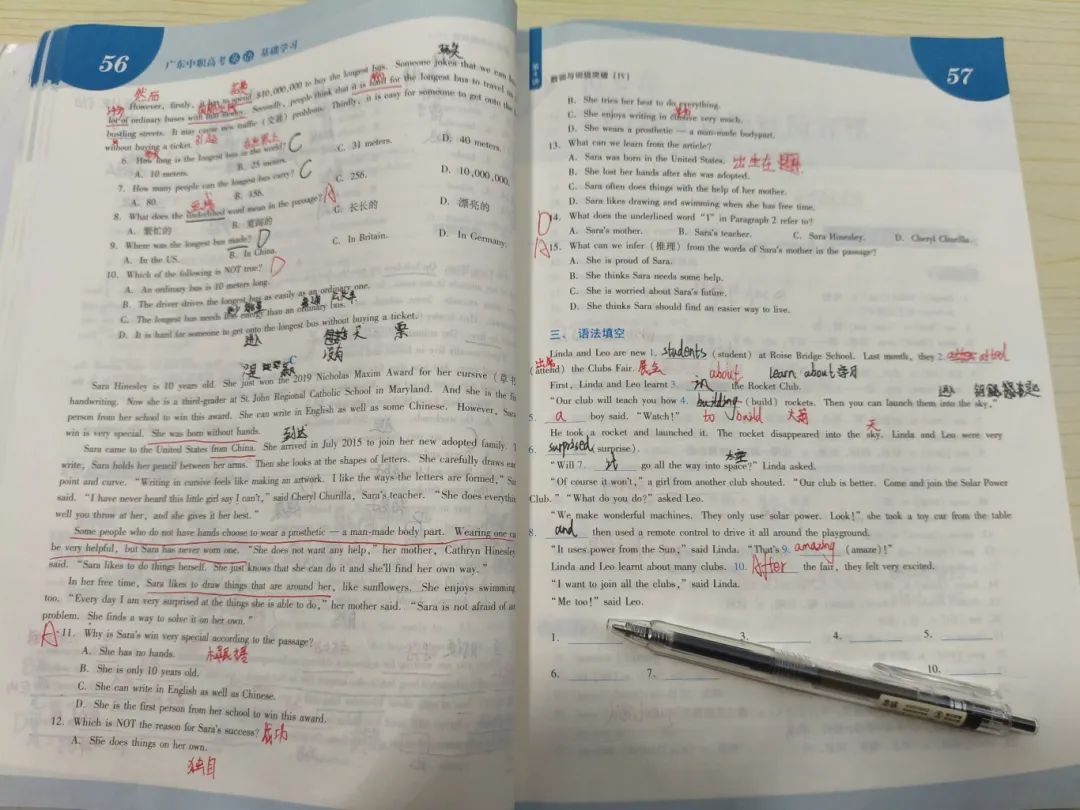 56
广东中职高考 英语 基础学习
However, firstly, it has to spend $10,000,000 to buy the longest bus. Someone jokes that we can bu
lot of ordinary buses with that money. Secondly, people think that it is hard for the longest bus to travel on
bustling streets. It may cause new traffic (交通) problems. Thirdly, it is easy for someone to get onto the
without buying a ticket.
然后
引起
6. How long is the longest bus in the world? C
A. 10 meters. B. 25 meters. C. 31 meters. D. 40 meters.
7. How many people can the longest bus carry? C
A. 80. B. 156. C. 256. D. 10,000,000.
8. What does the underlined word mean in the passage? A
A. 繁忙的 B. 宽阔的 C. 长长的 D. 漂亮的
9. Where was the longest bus made? D
A. In the US. B. In China. C. In Britain. D. In Germany.
10. Which of the following is NOT true? D
A. An ordinary bus is 10 meters long.
B. The driver drives the longest bus as easily as an ordinary one.
C. The longest bus needs less energy than an ordinary bus.
D. It is hard for someone to get onto the longest bus without buying a ticket.
没有
票
C
Sara Hinesley is 10 years old. She just won the 2019 Nicholas Maxim Award for her cursive (草书
handwriting. Now she is a third-grader at St. John Regional Catholic School in Maryland. And she is the fir
person from her school to win this award. She can write in English as well as some Chinese. However, Sara
win is very special. She was born without hands.
到达
Sara came to the United States from China. She arrived in July 2015 to join her new adopted family. T
write, Sara holds her pencil between her arms. Then she looks at the shapes of letters. She carefully draws eac
point and curve. "Writing in cursive feels like making an artwork. I like the ways the letters are formed," Sar
said. "I have never heard this little girl say I can't," said Cheryl Churilla, Sara's teacher. "She does everythin
well you throw at her, and she gives it her best."
Some people who do not have hands choose to wear a prosthetic — a man-made body part. Wearing one ca
be very helpful, but Sara has never worn one. "She does not want any help," her mother, Cathryn Hinesley
said. "Sara likes to do things herself. She just knows that she can do it and she'll find her own way."
In her free time, Sara likes to draw things that are around her, like sunflowers. She enjoys swimming
too. "Every day I am very surprised at the things she is able to do," her mother said. "Sara is not afraid of an
problem. She finds a way to solve it on her own."
A 11. Why is Sara's win very special according to the passage?
A. She has no hands.
B. She is only 10 years old.
C. She can write in English as well as Chinese.
D. She is the first person from her school to win this award.
12. Which is NOT the reason for Sara's success? 成功
A. She does things on her own.
独自
57
B. She tries her best to do everything.
C. She enjoys writing in cursive very much.
D. She wears a prosthetic — a man-made bodypart.
13. What can we learn from the article?
A. Sara was born in the United States. 出生在
B. She lost her hands after she was adopted.
C. Sara often does things with the help of her mother.
D. Sara likes drawing and swimming when she has free time.
D 14. What does the underlined word "I" in Paragraph 2 refer to?
A. Sara's mother. B. Sara's teacher. C. Sara Hinesley. D. Cheryl Churilla.
A 15. What can we infer (推理) from the words of Sara's mother in the passage?
A. She is proud of Sara.
B. She thinks Sara needs some help.
C. She is worried about Sara's future.
D. She thinks Sara should find an easier way to live.
三、语法填空
Linda and Leo are new 1. students (student) at Roise Bridge School. Last month, they 2.
出席
(attend) the Clubs Fair. 展会 about learn about学习
First, Linda and Leo learnt 3. in the Rocket Club.
"Our club will teach you how 4. building (build) rockets. Then you can launch them into the sky,"
5. a boy said. "Watch!" to build 火箭
天
He took a rocket and launched it. The rocket disappeared into the sky. Linda and Leo were very
6. surprised (surprise).
太空
"Will 7. it go all the way into space?" Linda asked.
"Of course it won't," a girl from another club shouted. "Our club is better. Come and join the Solar Power
Club." "What do you do?" asked Leo.
"We make wonderful machines. They only use solar power. Look!" she took a toy car from the table
8. and then used a remote control to drive it all around the playground.
"It uses power from the Sun," said Linda. "That's 9. amazing (amaze)!"
Linda and Leo learnt about many clubs. 10. After the fair, they felt very excited.
"I want to join all the clubs," said Linda.
"Me too!" said Leo.
1. 3. 4. 5.
6. 7. 10.